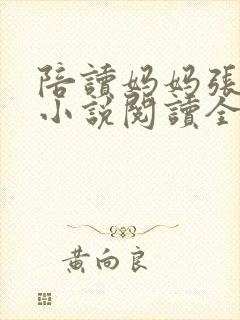 陪讀媽媽張
小說閱讀全
黃向良